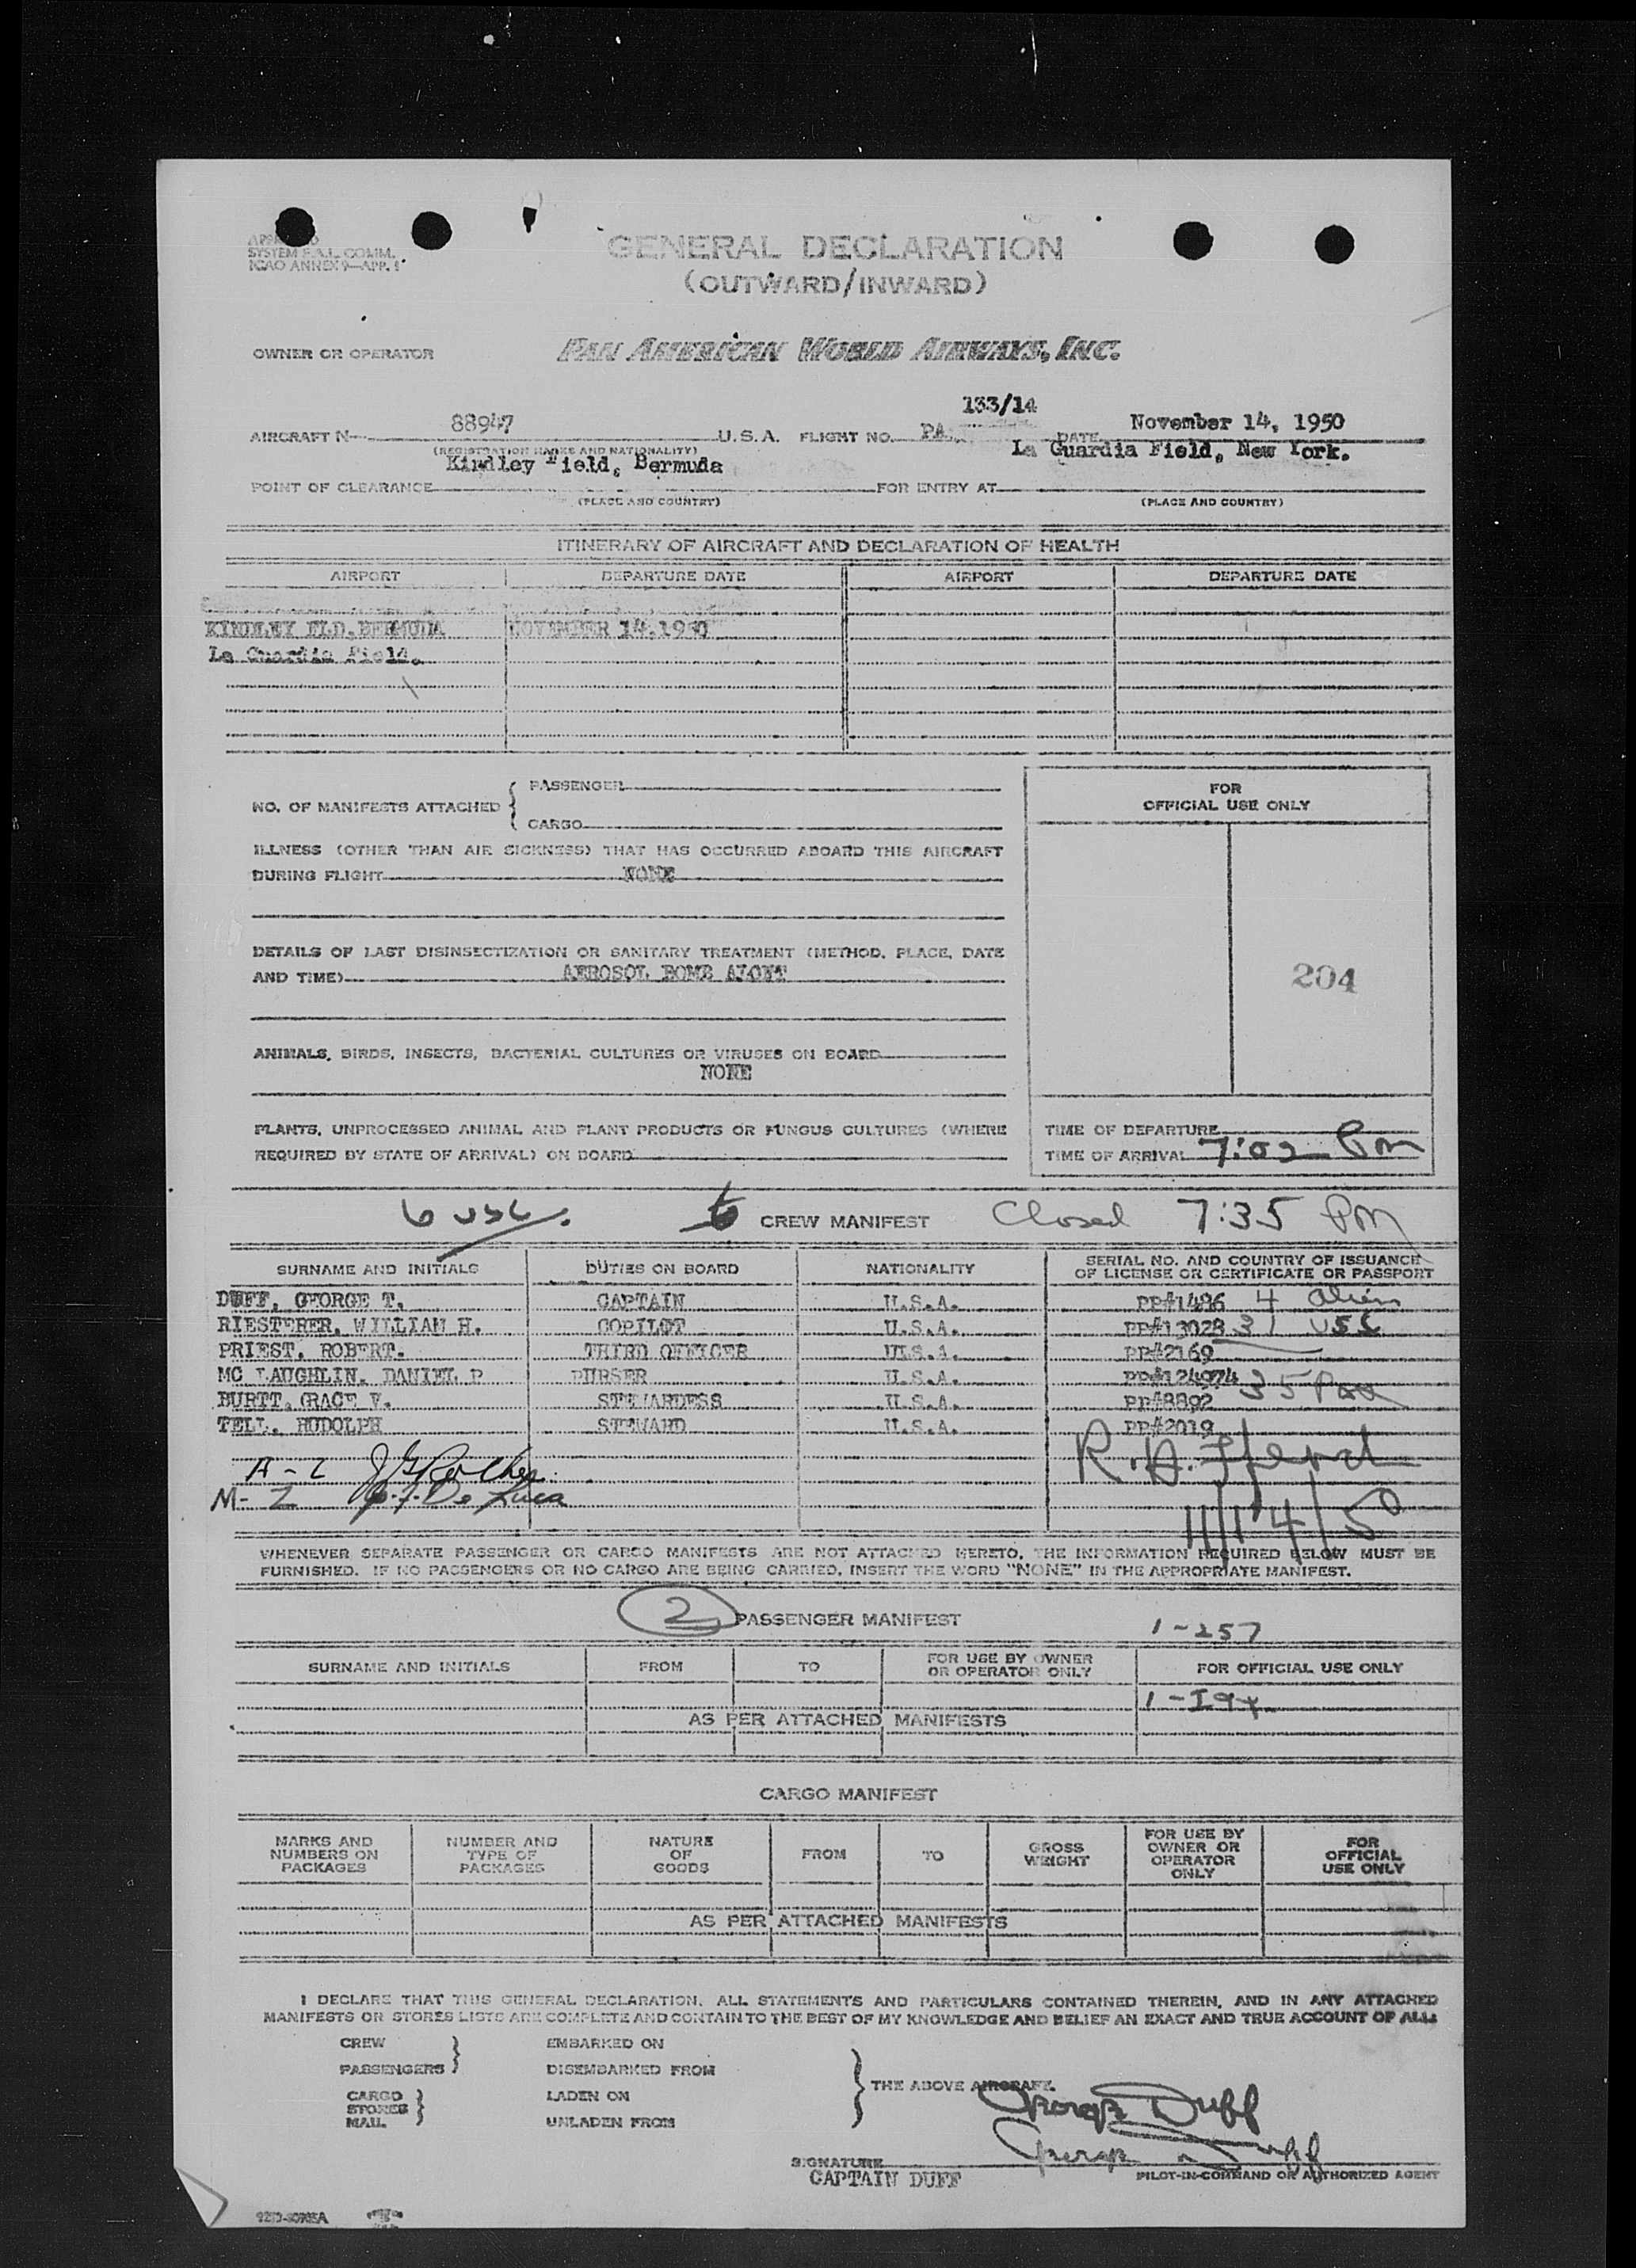 SYSTEM F.A.L. COMM.
ICAO ANNEX 9—APP. 1
GENERAL DECLARATION
(OUTWARD/INWARD)
OWNER OR OPERATOR PAN AMERICAN WORLD AIRWAYS, INC.
133/14
AIRCRAFT N 88947 U.S.A. FLIGHT NO. PA DATE November 14, 1950
(REGISTRATION MARKS AND NATIONALITY)
Kindley Field, Bermuda La Guardia Field, New York.
POINT OF CLEARANCE FOR ENTRY AT
(PLACE AND COUNTRY) (PLACE AND COUNTRY)
ITINERARY OF AIRCRAFT AND DECLARATION OF HEALTH
AIRPORT DEPARTURE DATE AIRPORT DEPARTURE DATE
KINDLEY FLD. BERMUDA NOVEMBER 14, 1950
La Guardia Field.
NO. OF MANIFESTS ATTACHED { PASSENGER
CARGO
FOR
OFFICIAL USE ONLY
ILLNESS (OTHER THAN AIR SICKNESS) THAT HAS OCCURRED ABOARD THIS AIRCRAFT
DURING FLIGHT NONE
DETAILS OF LAST DISINSECTIZATION OR SANITARY TREATMENT (METHOD, PLACE, DATE
AND TIME) AEROSOL BOMB ALOFT
204
ANIMALS, BIRDS, INSECTS, BACTERIAL CULTURES OR VIRUSES ON BOARD
NONE
PLANTS, UNPROCESSED ANIMAL AND PLANT PRODUCTS OR FUNGUS CULTURES (WHERE
REQUIRED BY STATE OF ARRIVAL) ON BOARD
TIME OF DEPARTURE
TIME OF ARRIVAL 7:02 Pm
6 USC. 6 CREW MANIFEST Closed 7:35 Pm
SURNAME AND INITIALS DUTIES ON BOARD NATIONALITY SERIAL NO. AND COUNTRY OF ISSUANCE
OF LICENSE OR CERTIFICATE OR PASSPORT
DUFF, GEORGE T. CAPTAIN U.S.A. PP#1486 4 Aliens
RIESTERER, WILLIAM H. COPILOT U.S.A. PP#13028 31 USC
PRIEST, ROBERT. THIRD OFFICER U.S.A. PP#2169
MC LAUGHLIN, DANIEL P PURSER U.S.A. PP#124974 35 Pax
BURTT, GRACE V. STEWARDESS U.S.A. PP#8892
TELL, RUDOLPH STEWARD U.S.A. PP#2019
A - 2
M - 2 De Luca
11/14/50
WHENEVER SEPARATE PASSENGER OR CARGO MANIFESTS ARE NOT ATTACHED HERETO, THE INFORMATION REQUIRED BELOW MUST BE
FURNISHED. IF NO PASSENGERS OR NO CARGO ARE BEING CARRIED, INSERT THE WORD "NONE" IN THE APPROPRIATE MANIFEST.
2 PASSENGER MANIFEST 1-257
SURNAME AND INITIALS FROM TO FOR USE BY OWNER
OR OPERATOR ONLY FOR OFFICIAL USE ONLY
AS PER ATTACHED MANIFESTS
CARGO MANIFEST
MARKS AND
NUMBERS ON
PACKAGES
NUMBER AND
TYPE OF
PACKAGES
NATURE
OF
GOODS
FROM
TO
GROSS
WEIGHT
FOR USE BY
OWNER OR
OPERATOR
ONLY
FOR
OFFICIAL
USE ONLY
AS PER ATTACHED MANIFESTS
I DECLARE THAT THIS GENERAL DECLARATION, ALL STATEMENTS AND PARTICULARS CONTAINED THEREIN, AND IN ANY ATTACHED
MANIFESTS OR STORES LISTS ARE COMPLETE AND CONTAIN TO THE BEST OF MY KNOWLEDGE AND BELIEF AN EXACT AND TRUE ACCOUNT OF ALL:
CREW
PASSENGERS }
CARGO
STORES }
MAIL
EMBARKED ON
DISEMBARKED FROM
LADEN ON
UNLADEN FROM
} THE ABOVE AIRCRAFT.
George Duff
George T. Duff
SIGNATURE
CAPTAIN DUFF PILOT-IN-COMMAND OR AUTHORIZED AGENT